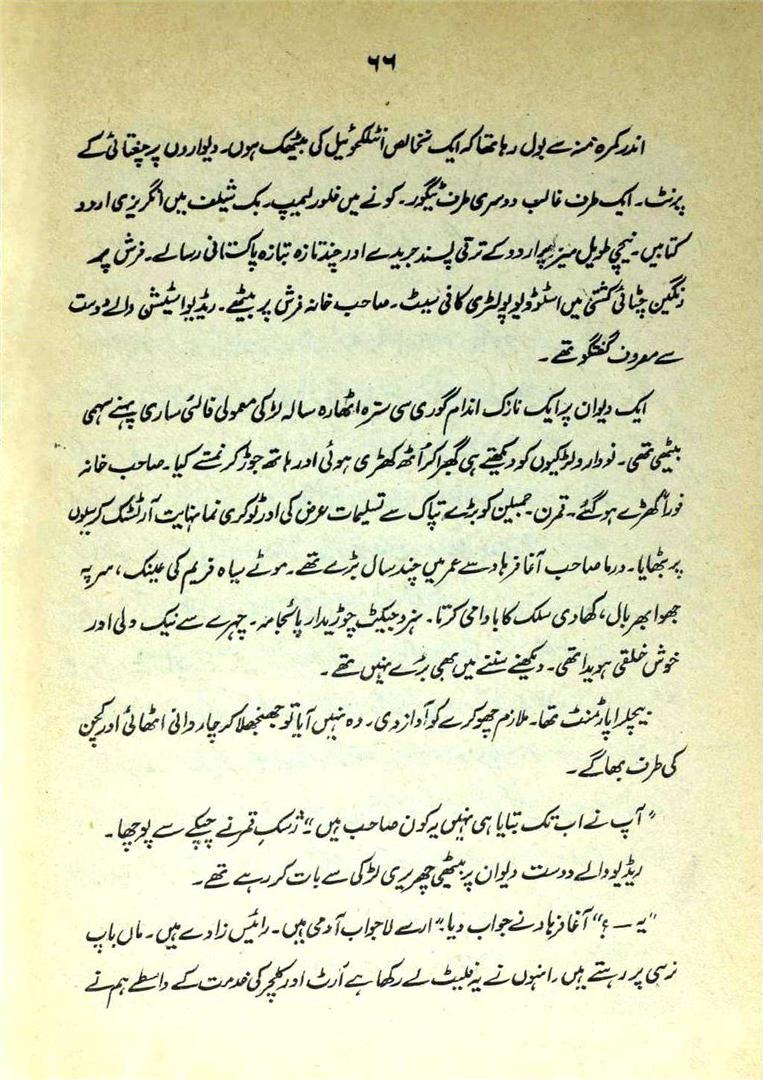 ۶۶
اندر کمرہ منہ سے بول رہا تھا کہ ایک نخالص انٹلکچوئیل کی بیٹھک ہوں۔ دیواروں پر چغتائی کے
پرنٹ۔ ایک طرف غالب دوسری طرف ٹیگور۔ کونے میں فلور لیمپ۔ بک شیلف میں انگریزی اردو
کتابیں۔ نیچی طویل میز پر اردو کے ترقی پسند جریدے اور چند تازہ بتازہ پاکستانی رسالے۔ فرش پر
رنگین چٹائی کشتی میں اسٹوڈیو پولٹری کافی سیٹ۔ صاحب خانہ فرش پر بیٹھے۔ ریڈیو اسٹیشن والے دوست
سے مصروف گفتگو تھے۔
ایک دیوان پر ایک نازک اندام گوری سی سترہ اٹھارہ سالہ لڑکی معمولی فالسئی ساری پہنے سہمی
بیٹھی تھی۔ نووارد لڑکیوں کو دیکھتے ہی گھبرا کر اُٹھ کھڑی ہوئی اور ہاتھ جوڑ کر نمستے کیا۔ صاحب خانہ
فوراً کھڑے ہو گئے۔ قمرن۔ جمیلن کو بڑے تپاک سے تسلیمات عرض کی اور ٹوکری نما نہایت آرٹسٹک کرسیوں
پر بٹھایا۔ ورما صاحب آغا فرہاد سے عمر میں چند سال بڑے تھے۔ موٹے سیاہ فریم کی عینک، سر پہ
جھوا بھر بال، کھادی سلک کا بادامی کرتا۔ سبز جیکٹ چوڑیدار پائجامہ۔ چہرے سے نیک دلی اور
خوش خلقی ہویدا تھی۔ دیکھنے سننے میں بھی بُرے نہیں تھے۔
بیچلر اپارٹمنٹ تھا۔ ملازم چھوکرے کو آواز دی۔ وہ نہیں آیا تو جھنجھلا کر چاردانی اٹھائی اور کچن
کی طرف بھاگے۔
"آپ نے اب تک بتایا ہی نہیں یہ کون صاحب ہیں۔" رشک قمر نے چپکے سے پوچھا۔
ریڈیو والے دوست دیوان پر بیٹھی چھریری لڑکی سے بات کر رہے تھے۔
"یہ — ؟" آغا فرہاد نے جواب دیا۔ "ارے لاجواب آدمی ہیں۔ رائیس زادے ہیں۔ ماں باپ
نرہی پر رہتے ہیں۔ انہوں نے یہ فلیٹ لے رکھا ہے آرٹ اور کلچر کی خدمت کے واسطے ہم نے